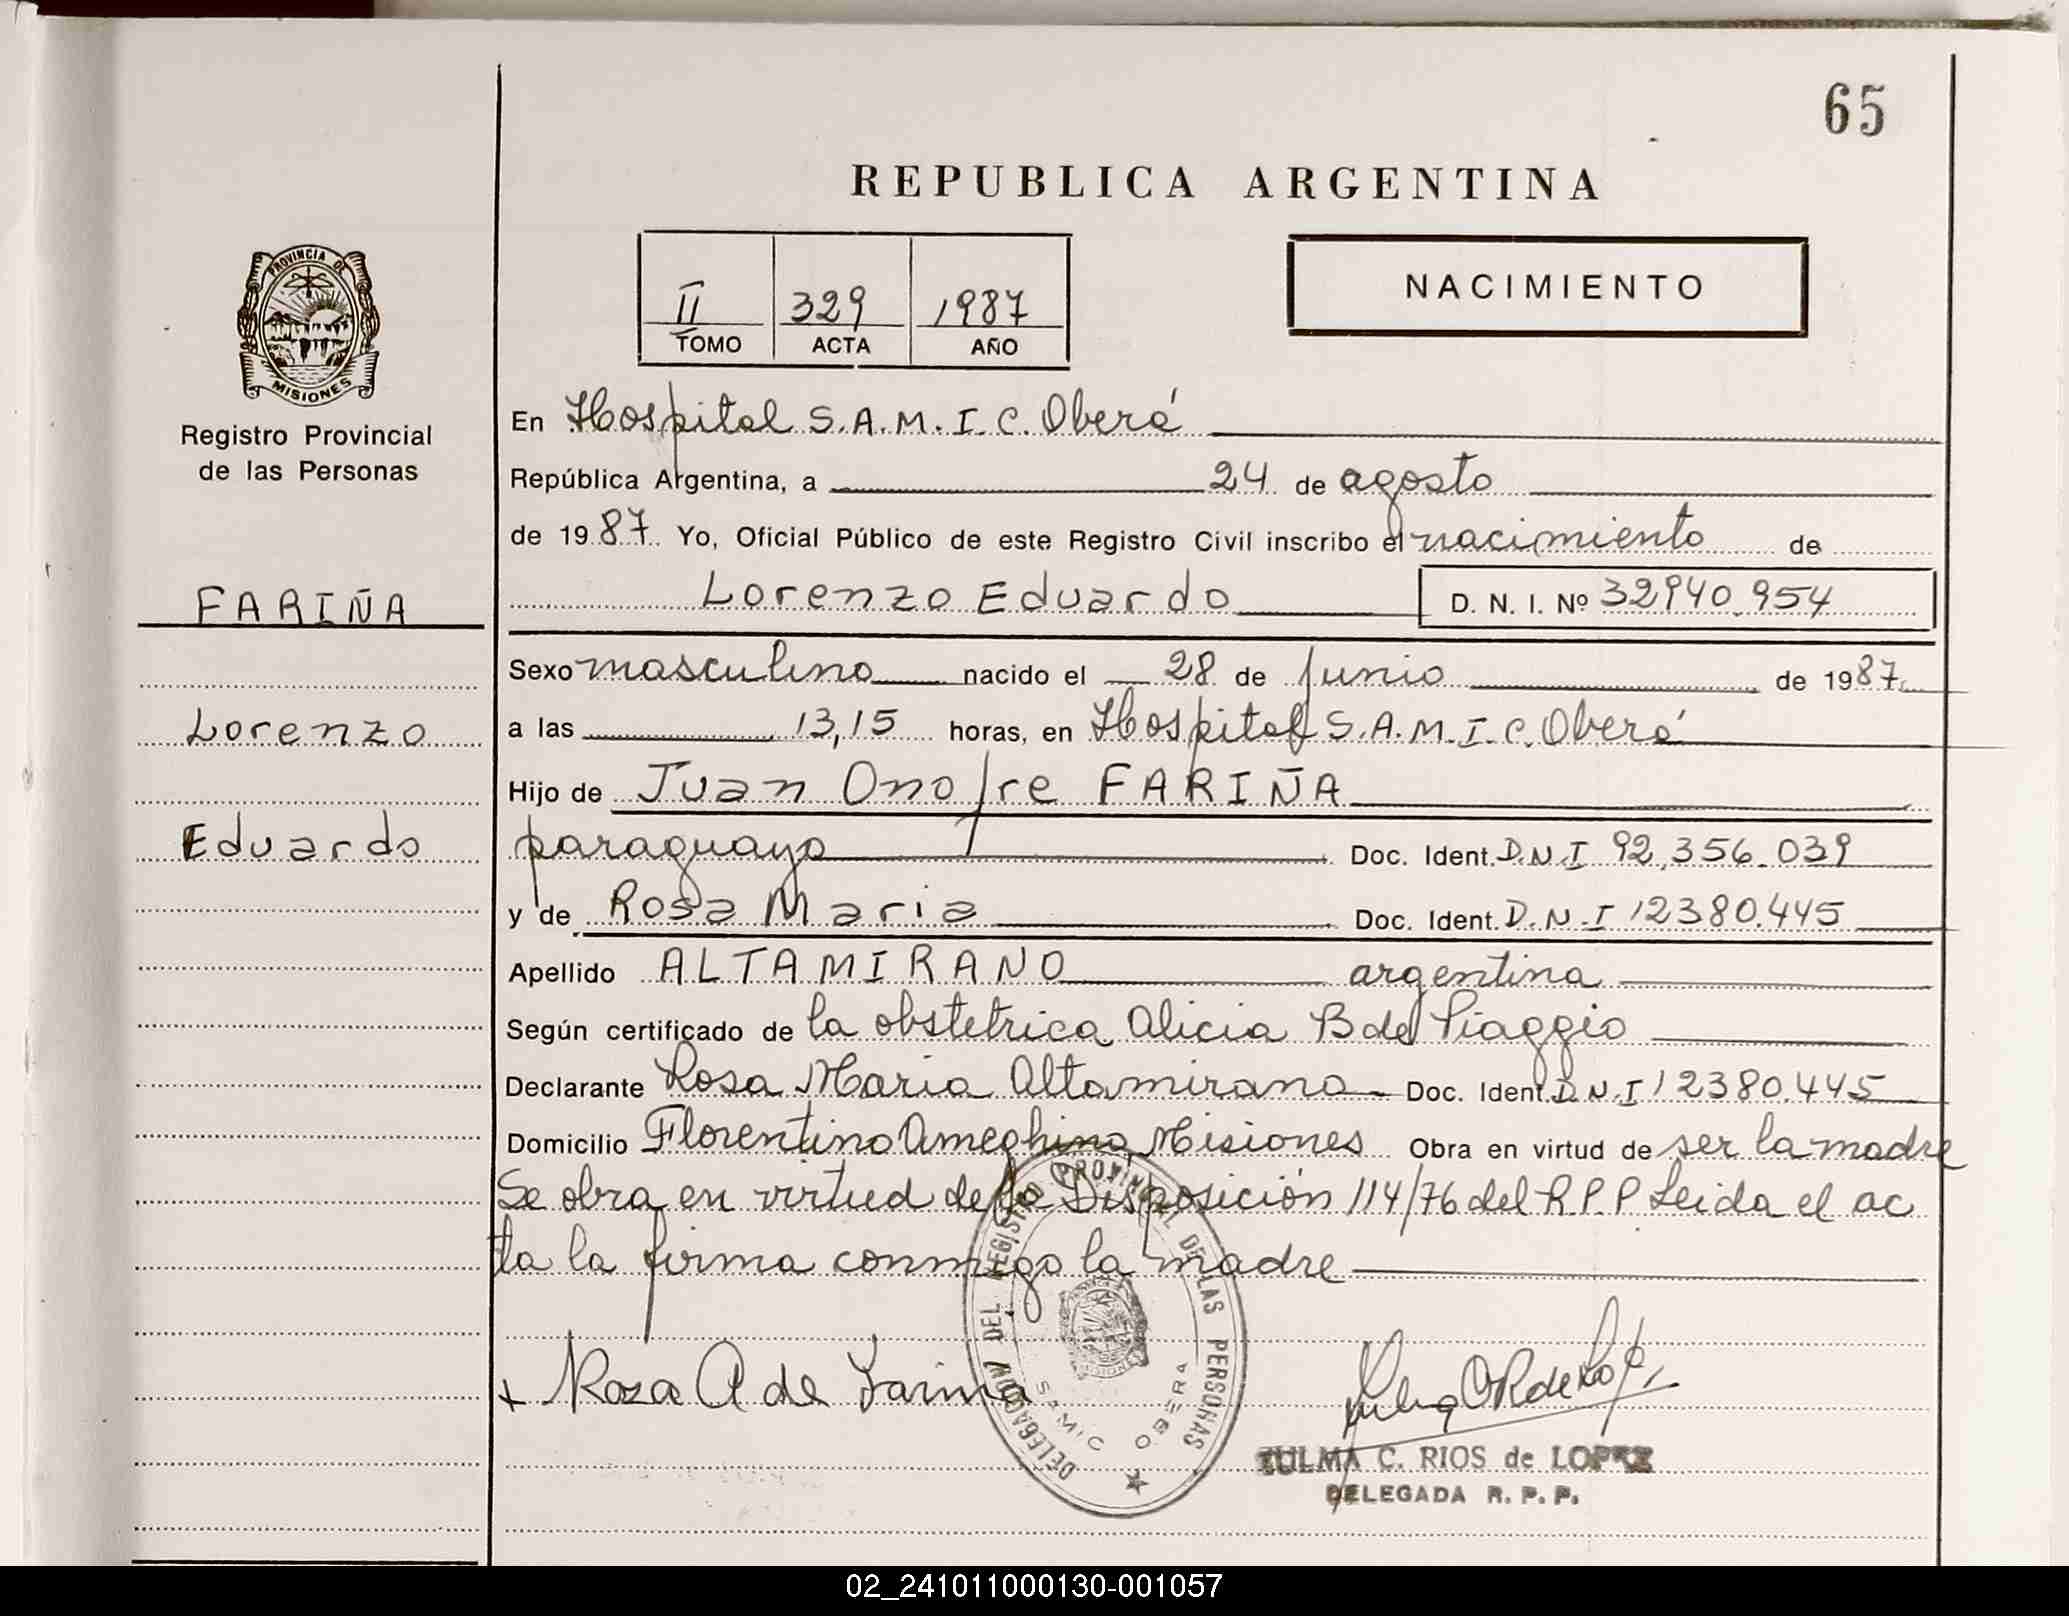 65
REPUBLICA ARGENTINA
PROVINCIA DE
MISIONES
Registro Provincial
de las Personas
FARIÑA
Lorenzo
Eduardo
II 329 1987
TOMO ACTA AÑO
NACIMIENTO
En Hospital S.A.M.I.C. Oberá
República Argentina, a 24 de agosto
de 1987. Yo, Oficial Público de este Registro Civil inscribo el nacimiento de
Lorenzo Eduardo D. N. I. Nº 32940.954
Sexo masculino nacido el 28 de junio de 1987
a las 13,15 horas, en Hospital S.A.M.I.C. Oberá
Hijo de Juan Onofre FARIÑA
paraguayo Doc. Ident. D.N.I 92.356.039
y de Rosa Maria Doc. Ident. D.N.I 12380.445
Apellido ALTAMIRANO argentina
Según certificado de la obstetrica Alicia B de Piaggio
Declarante Rosa Maria Altamirano Doc. Ident. D.N.I 12380.445
Domicilio Florentino Ameghino Misiones Obra en virtud de ser la madre
Se obra en virtud de la Disposición 114/76 del R.P.P Leida el ac
ta la firma conmigo la madre
DELEGACION DEL REGISTRO PROVINCIAL DE LAS PERSONAS
SAMIC OBERA
Roza A de Farina
ZULMA C. RIOS de LOPEZ
DELEGADA R. P. P.
02_241011000130-001057